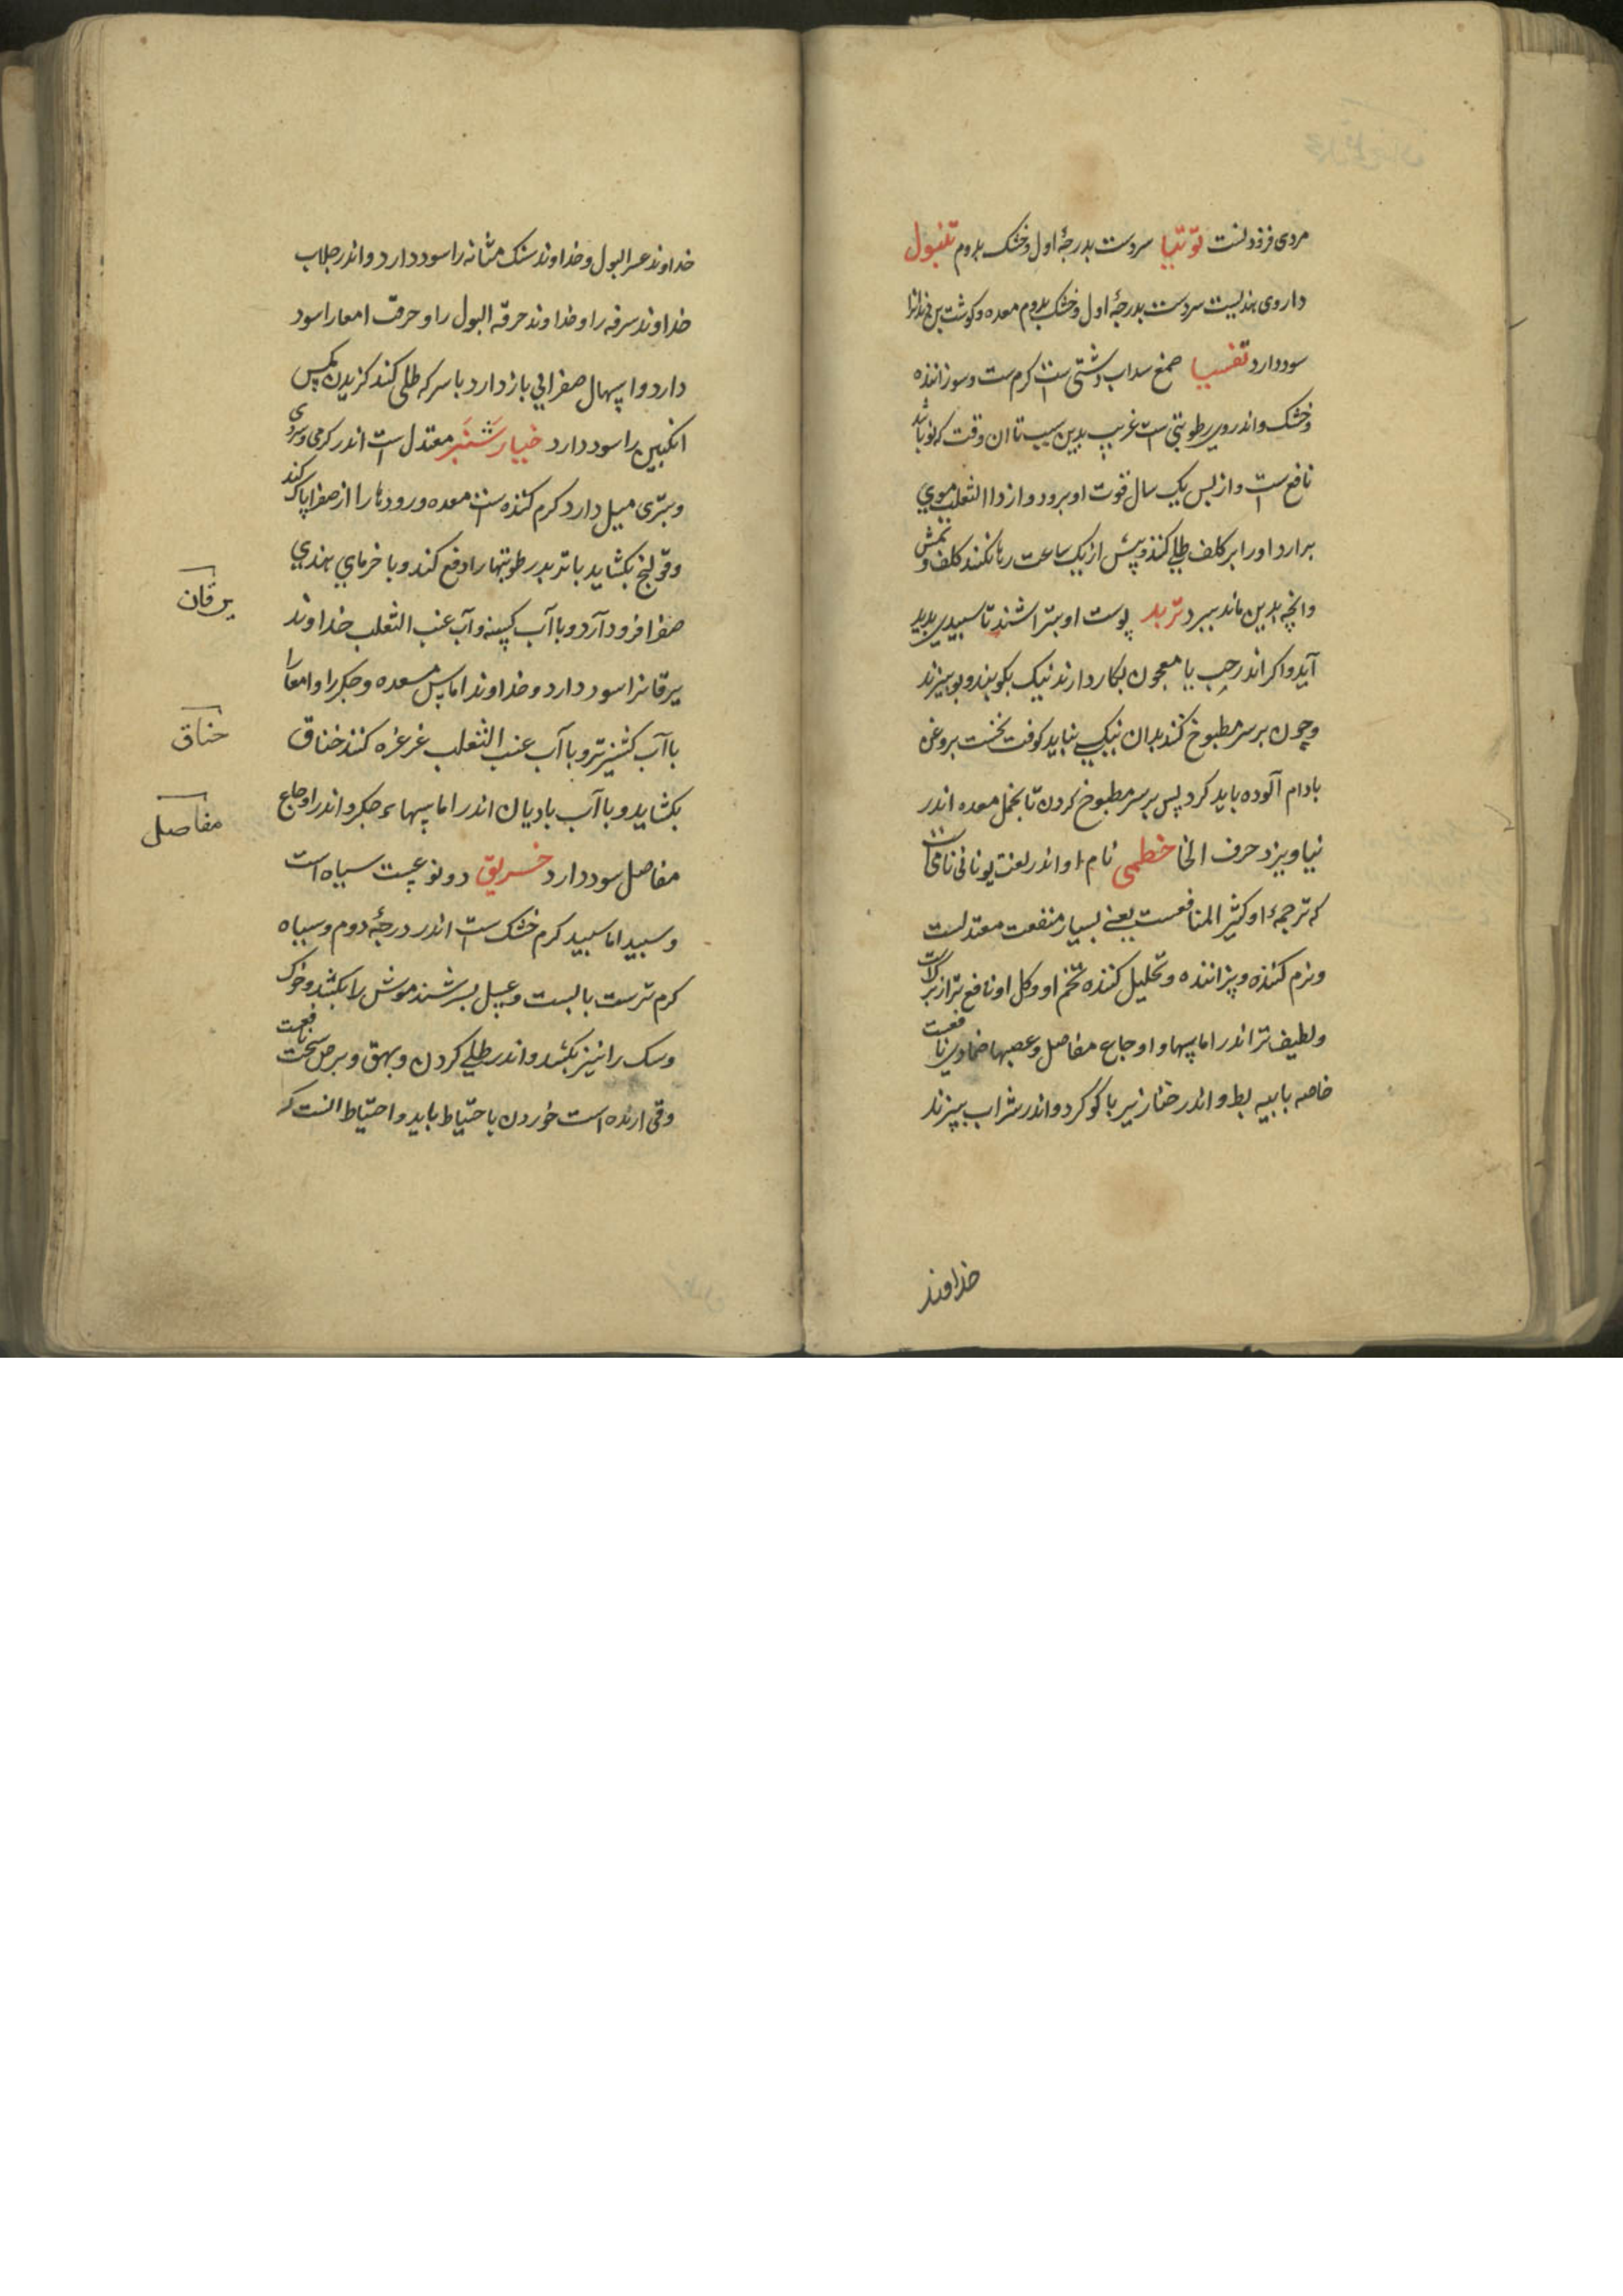 مردی فزود نست توتیا سردست بدرجهٔ اول و خشک بدوم تنبول
داروی هندیست سردست بدرجهٔ اول و خشک بدوم معده و کوشت بن دندانرا
سود دارد تفسیا صمغ سداب دشتی است کرم ست و سوزاننده
و خشک و اندر وی رطوبتی است غریب بدین سبب تا ان وقت که نو باشد
نافع است و از پس یک سال قوت او برود و از داالثعلب موی
برارد او را بر کلف طلی کنند و پیش از یک ساعت رها نکنند کلف و نمش
و انچه بدین ماند ببرد تربد پوست او بتراشند تا سبیدی پدید
آید و اکر اندر حب یا معجون بکار دارند نیک بکوبند و ببیزند
و چون بر سر مطبوخ کنند بدان نیکی نباید کوفت نخست بروغن
بادام آلوده باید کرد پس بر سر مطبوخ کردن تا بخمل معده اندر
نیاویزد حرف الخا خطمی نام او اندر لغت یونانی نامی است
که ترجمهٔ او کثیر المنافعست یعنی بسیار منفعت معتدلست
و نرم کننده و پزاننده و تحلیل کننده تخم او و کل او نافع تر از برک است
و لطیف تر اندر اماسها و اوجاع مفاصل و عصبها ضمادوی نافعست
خاصه با پیه بط و اندر خنازیر با کوکرد و اندر شراب بپزند
خداوند
خداوند عسر البول و خداوند سنک مثانه را سود دارد و اندر جلاب
خداوند سرفه را و خداوند حرقه البول را و حرقت امعا را سود
دارد و اسهال صفرایی باز دارد با سرکه طلی کنند کزیدن مکس
انکبین را سود دارد خیارشنبر معتدل است اندر کرمی و سردی
و بتری میل دارد کرم کننده ست معده و رودها را از صفرا پاک کند
و قولنج بکشاید با تربد رطوبتها را دفع کند و با خرمای هندی
صفرا فرود آرد و با آب کسنه و آب عنب الثعلب خداوند
یرقانرا سود دارد و خداوند اماس معده و جکر را و امعا را
با آب کشنیز تر و با آب عنب الثعلب غرغره کنند خناق
بکشاید و با آب بادیان اندر اماسهاء جکر و اندر اوجاع
مفاصل سود دارد خربق دو نوعست سیاه است
و سبید اما سبید کرم خشک ست اندر درجهٔ دوم و سیاه
کرم ترست با بست و عسل بسرشند موش را بکشد و خوک
و سک را نیز بکشد و اندر طلی کردن و بهق و برص سخت نافعست
و قی ارنده است خوردن باحتیاط باید و احتیاط انست که
یرقان
خناق
مفاصل